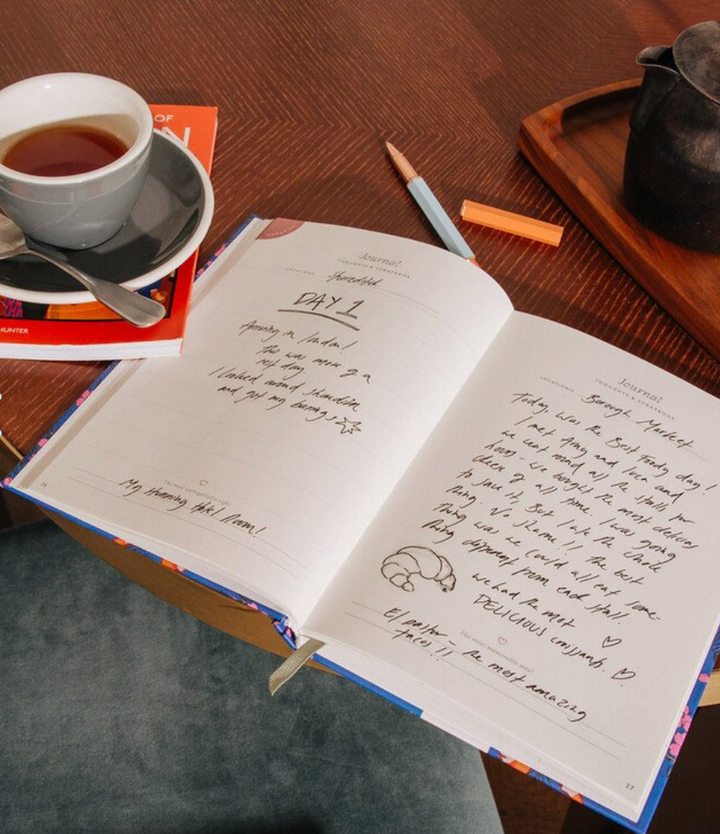 OF
N
HUNTER
Journal
THOUGHTS & SCRAPBOOK
LOCATION(S) Shoreditch
DAY 1
Arriving in London!
This was more of a
rest day.
I looked around Shoreditch
and got my bearings
The most unforgettable sight
My stunning Hotel Room!
16
Journal
THOUGHTS & SCRAPBOOK
LOCATION(S) Borough Market
Today was the Best Foody day!
I met Amy and Luca and
we went round all the stalls for
hours - we bought the most delicious
cheese of all time. I was going
to save it, But I ate the whole
thing. No shame!! The best
thing was we could all eat some-
thing different from each stall.
we had the most
DELICIOUS croissants!
The most memorable meal
El pastor - the most amazing
tacos!!
17